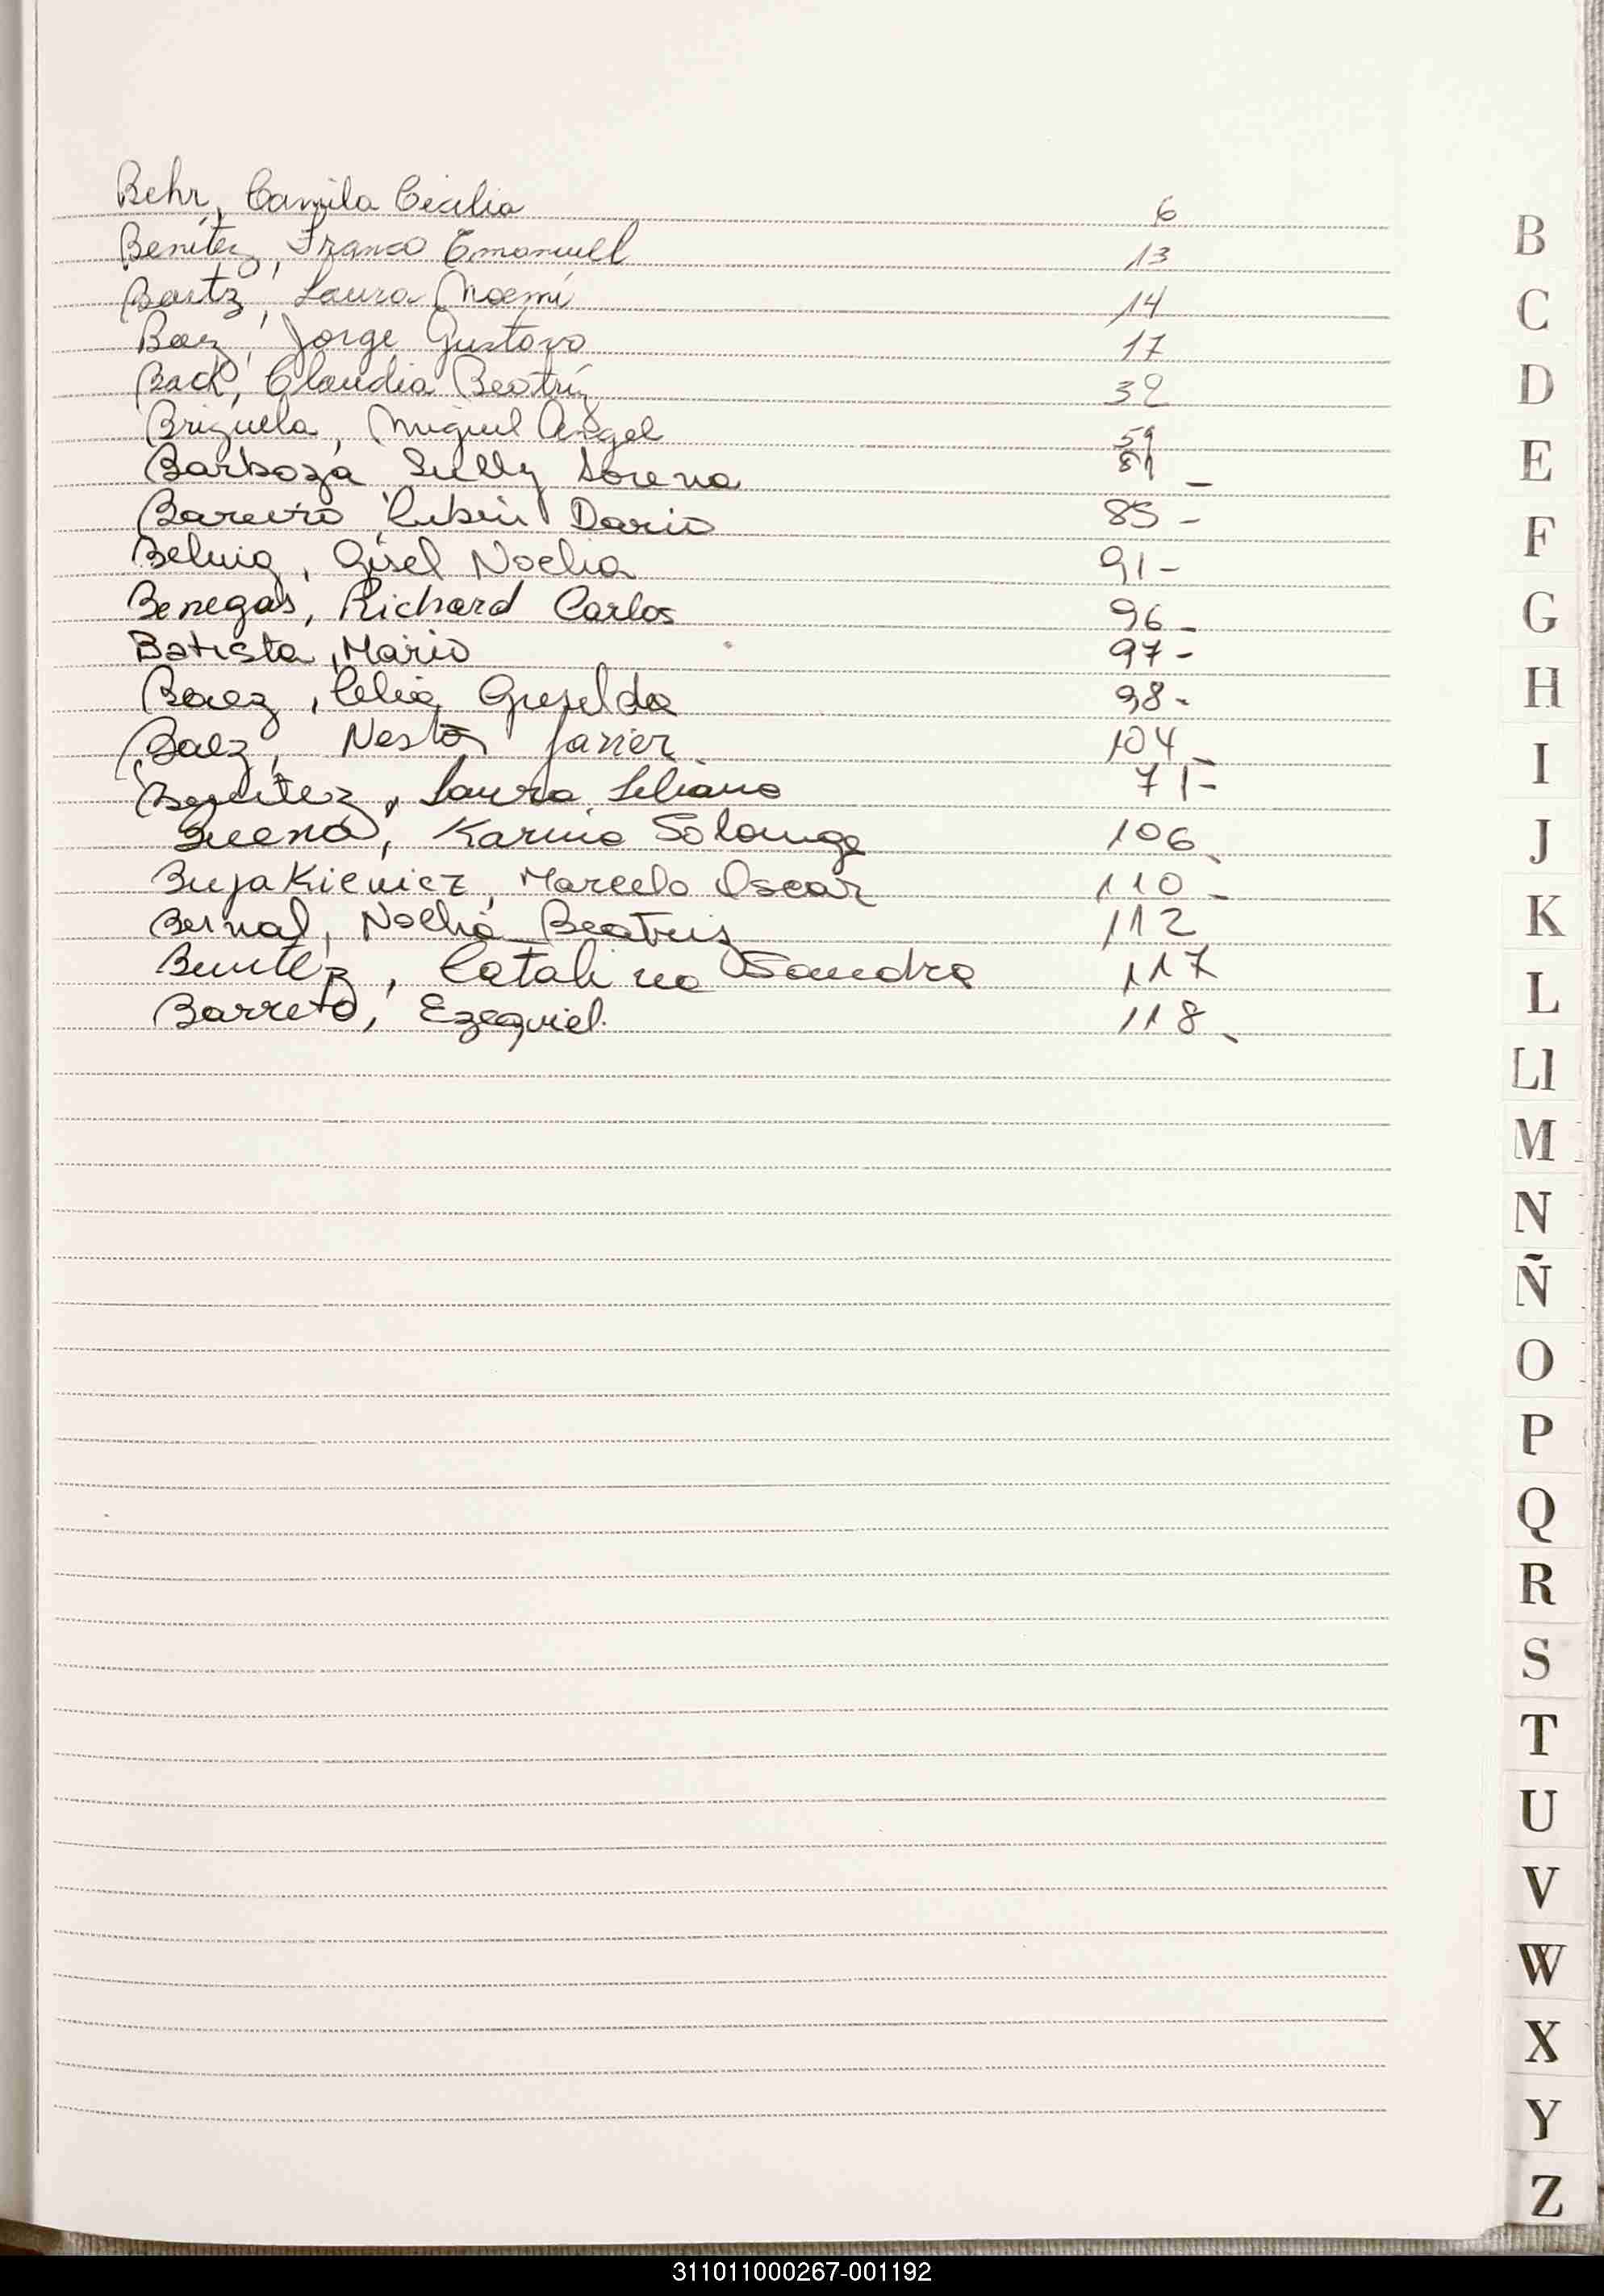 Behr, Camila Cecilia 6
Benítez, Franco Emanuel 13
Bartz, Laura Noemí 14
Baez, Jorge Gustavo 17
Back, Claudia Beatríz 32
Brizuela, Miguel Angel 59
Barboza Sully Lorena 81 -
Bareiro, Rubén Dario 85 -
Beluig, Gisel Noelia 91 -
Benegas, Richard Carlos 96 -
Batista, Mario 97 -
Baez, Celia Griselda 98 -
Baez, Nestor Javier 104 -
Benitez, Laura Liliana 71 -
Buena, Karina Solange 106 -
Bujakievicz, Marcelo Oscar 110 -
Bernal, Noelia Beatriz 112
Benitez, Catalina Sandra 117
Barreto, Ezequiel. 118 -
B
C
D
E
F
G
H
I
J
K
L
Ll
M
N
Ñ
O
P
Q
R
S
T
U
V
W
X
Y
Z
311011000267-001192